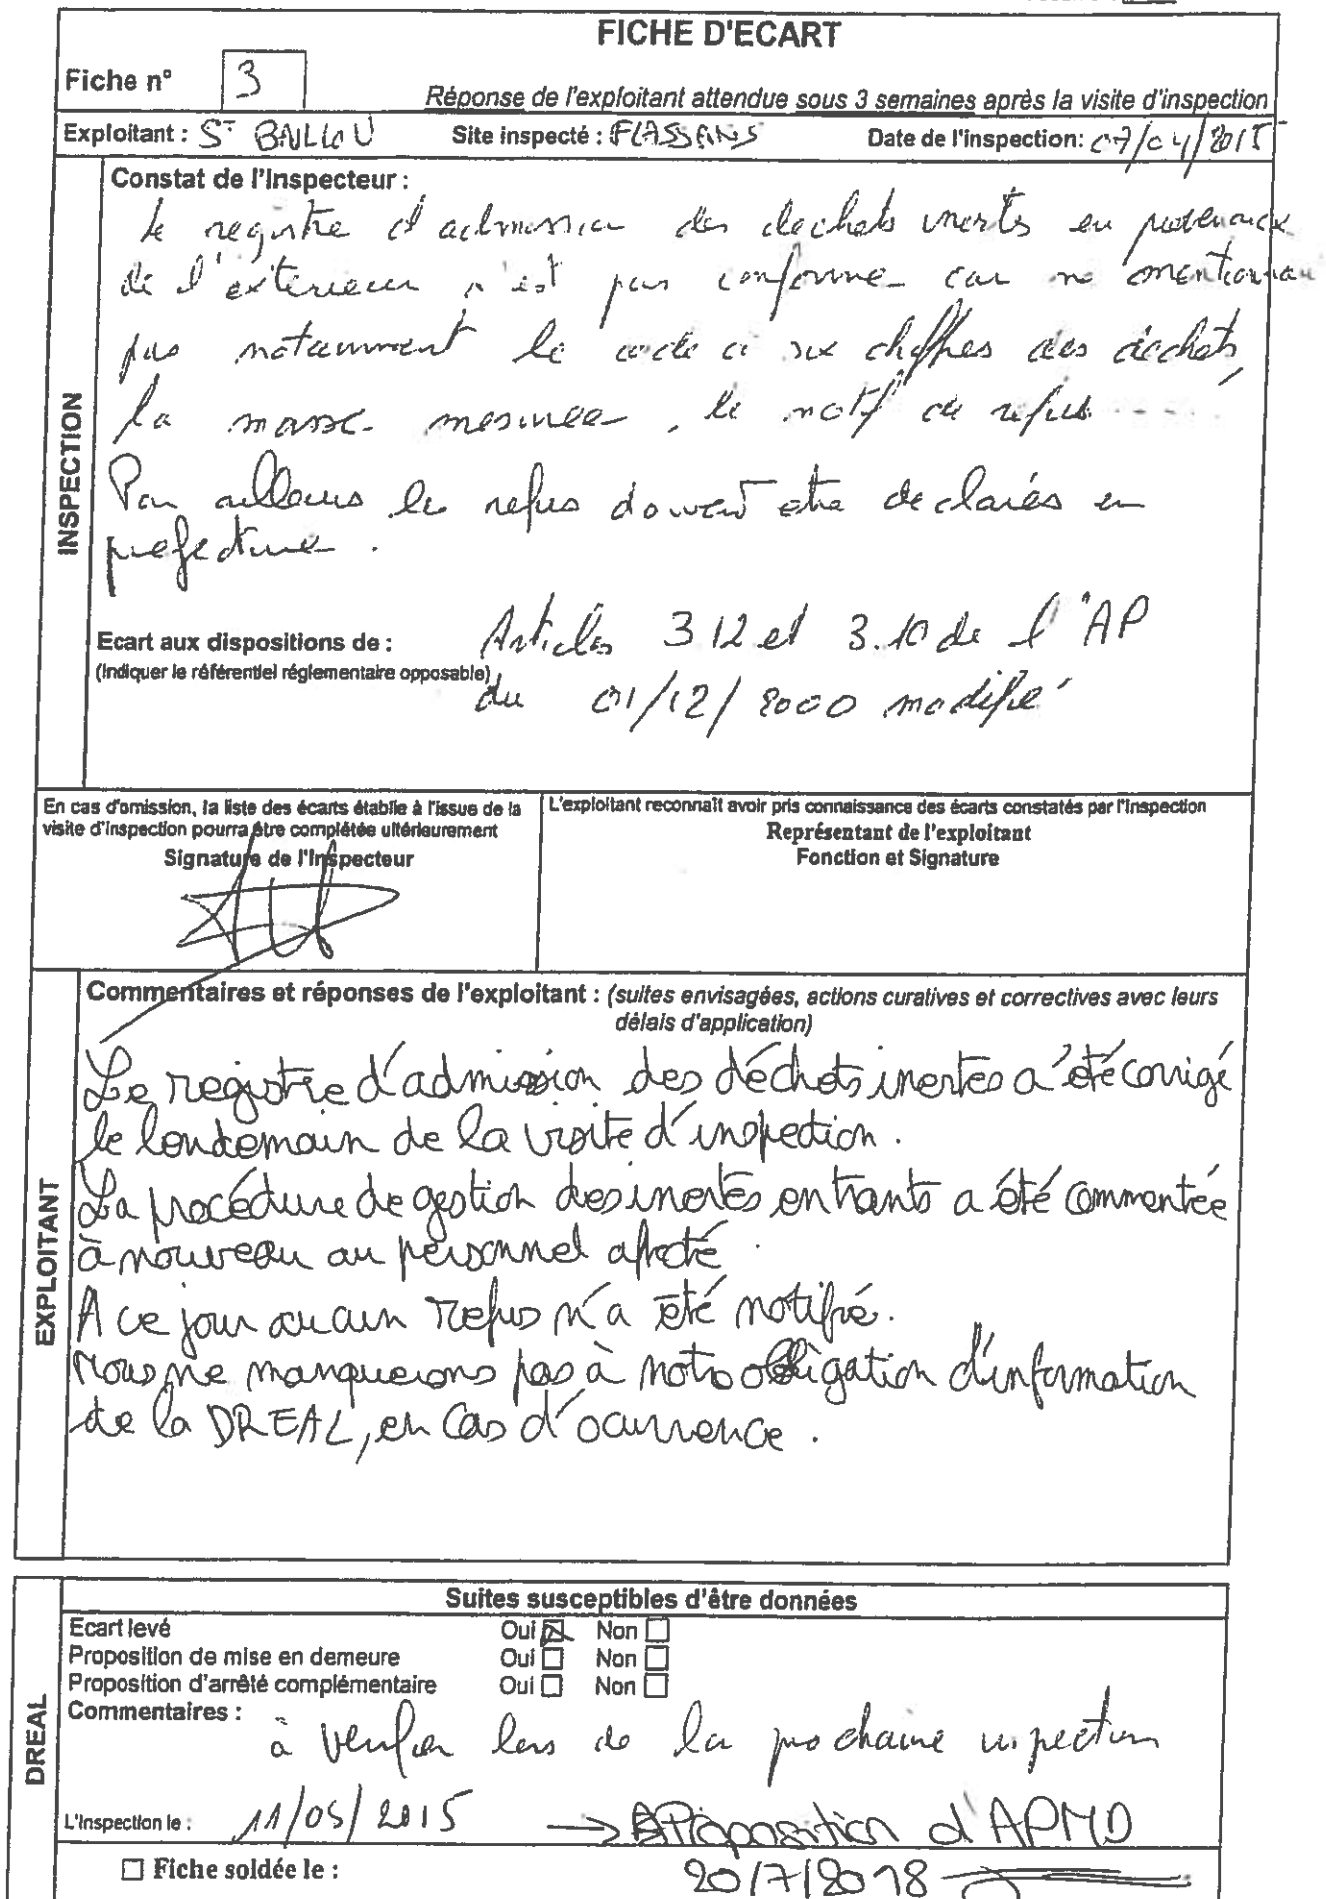 FICHE D'ECART
Fiche n° 3
Réponse de l'exploitant attendue sous 3 semaines après la visite d'inspection
Exploitant : St BAILLOU Site inspecté : FLASSANS Date de l'inspection: 07/04/2015
INSPECTION
Constat de l'Inspecteur :
Le registre d'admission des dechets inertes en provenance
de l'exterieur n'est pas conforme car ne mentionnan
pas notamment le code à six chiffres des déchets,
la masse mesurée, le motif de refus ....
Par ailleurs les refus doivent etre declarés en
prefecture.
Ecart aux dispositions de : Articles 3.12 et 3.10 de l'AP
(Indiquer le référentiel réglementaire opposable) du 01/12/2000 modifié
En cas d'omission, la liste des écarts établie à l'issue de la
visite d'inspection pourra être complétée ultérieurement
Signature de l'Inspecteur
L'exploitant reconnaît avoir pris connaissance des écarts constatés par l'Inspection
Représentant de l'exploitant
Fonction et Signature
EXPLOITANT
Commentaires et réponses de l'exploitant : (suites envisagées, actions curatives et correctives avec leurs
délais d'application)
Le registre d'admission des déchets inertes a été corrigé
le lendemain de la visite d'inspection.
La procédure de gestion des inertes entrants a été commentée
à nouveau au personnel affecté.
A ce jour aucun refus n'a été notifié.
Nous ne manquerons pas à notre obligation d'information
de la DREAL, en cas d'ocurrence.
DREAL
Suites susceptibles d'être données
Ecart levé Oui ☒ Non ☐
Proposition de mise en demeure Oui ☐ Non ☐
Proposition d'arrêté complémentaire Oui ☐ Non ☐
Commentaires : à verifier lors de la prochaine inspection
L'Inspection le : 11/05/2015 → Proposition d'APMD
☐ Fiche soldée le : 20/7/2018